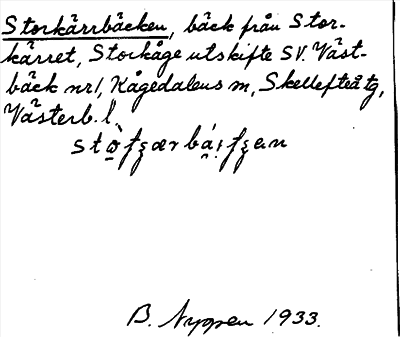 Storkärrbäcken, bäck från Stor-
kärret, Storkåge utskifte SV. Väst-
bäck nr1, Kågedalens m, Skellefteå tg,
Västerb. l.
B. Nyppen 1933.